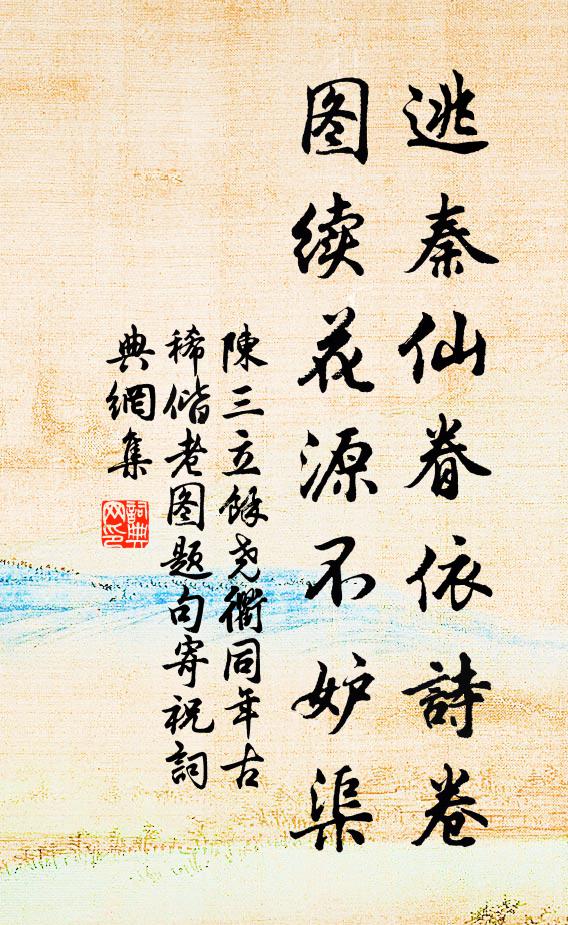 逃秦仙眷依詩卷
图续花源不妒渠
陳三立餘尧衢同年古
稀偕老图题句寄祝詞
典網集
詞典网印